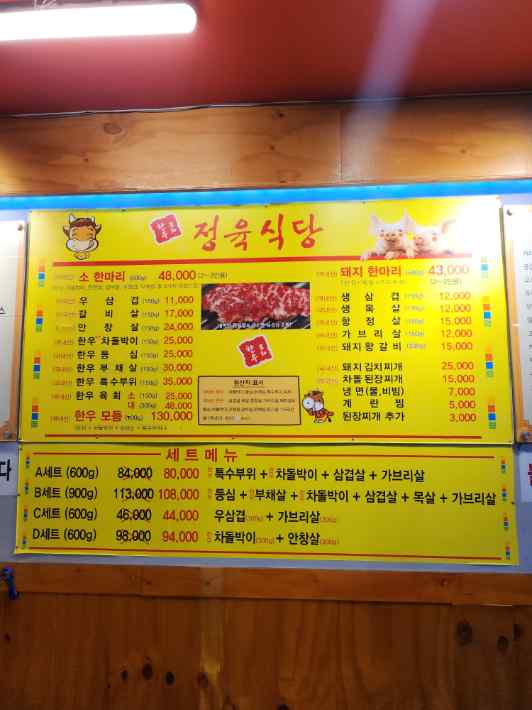 정육식당
소 한마리 (600g) 48,000 (2~3인분)
우삼겹 (150g) 11,000
갈비살 (150g) 17,000
안창살 (150g) 24,000
한우 차돌박이 (150g) 25,000
한우 등심 (150g) 25,000
한우 부채살 (150g) 30,000
한우 특수부위 (150g) 35,000
한우 육회 소 (150g) 25,000
대 48,000
한우 모듬 130,000
원산지 표시
돼지 한마리 43,000
(2~3인분)
생삼겹 12,000
생목살 12,000
항정살 15,000
가브리살 12,000
돼지항갈비 15,000
돼지김치찌개 25,000
차돌된장찌개 15,000
냉면(물,비빔) 7,000
계란찜 5,000
된장찌개 추가 3,000
세트메뉴
A세트 (600g) 84,000 80,000 특수부위 + 차돌박이 + 삼겹살 + 가브리살
B세트 (900g) 113,000 108,000 등심 + 부채살 + 차돌박이 + 삼겹살 + 목살 + 가브리살
C세트 (600g) 46,000 44,000 우삼겹(300g) + 가브리살(300g)
D세트 (600g) 98,000 94,000 차돌박이(300g) + 안창살(300g)
다